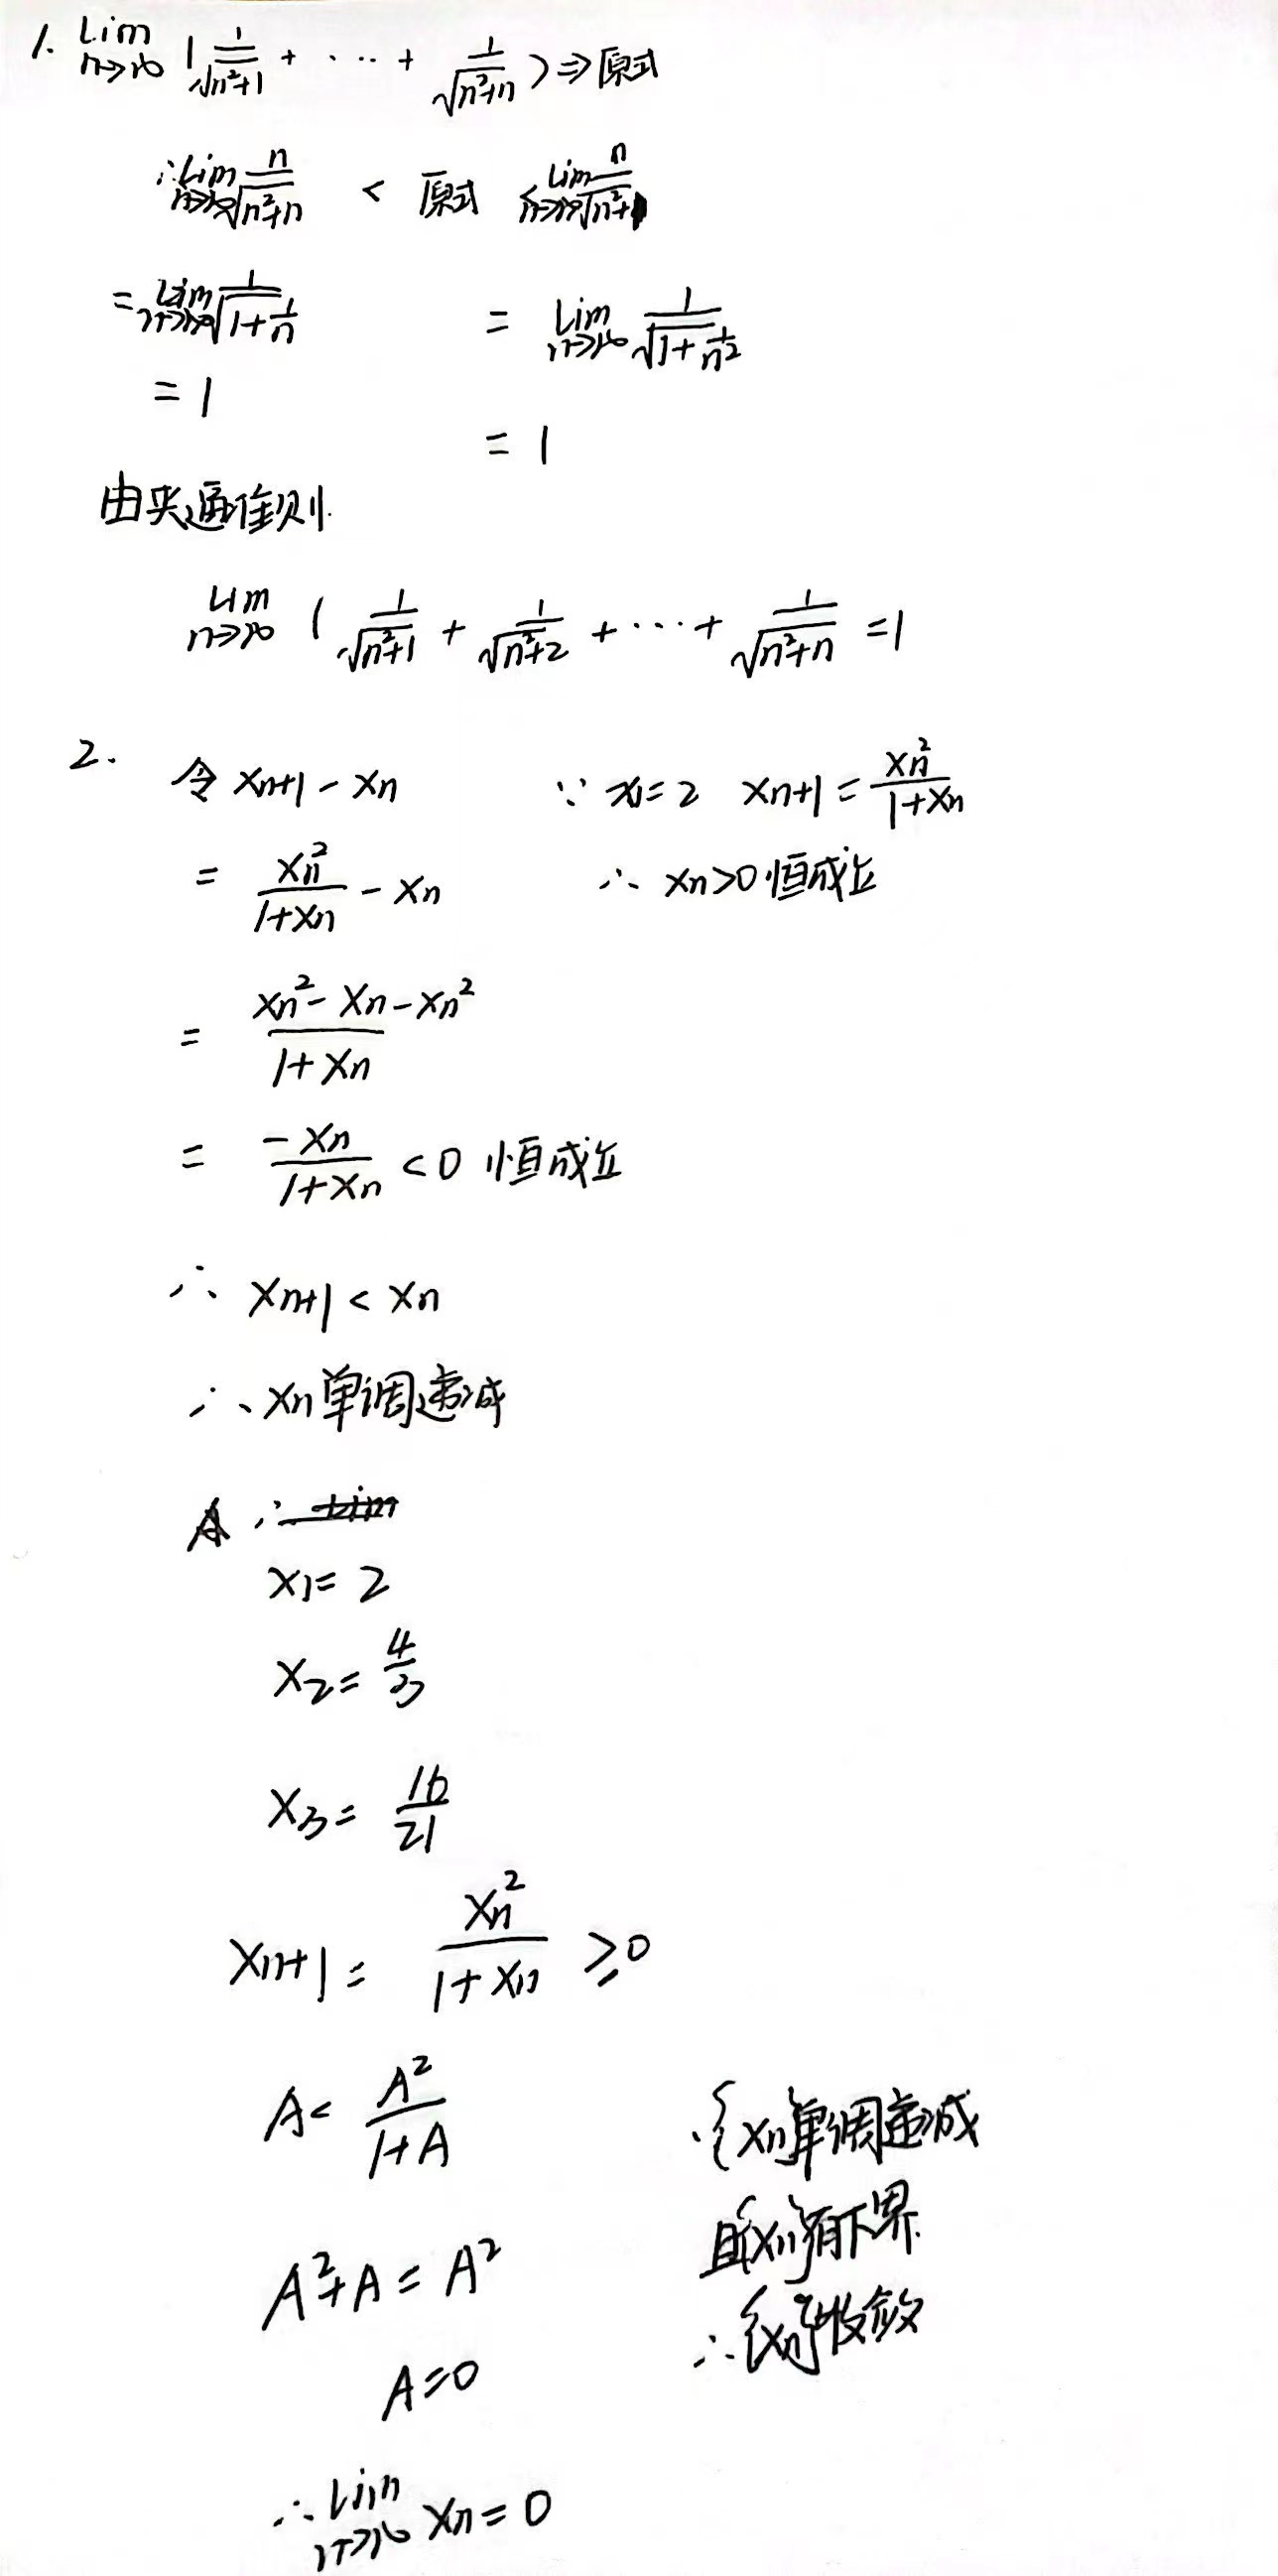 1. lim n→∞ ( 1/√(n²+1) + ··· + 1/√(n²+n) ) ⇒ 原式
∴ lim n→∞ n/√(n²+n) < 原式 < lim n→∞ n/√(n²+1)
= lim n→∞ 1/√(1+1/n) = lim n→∞ 1/√(1+1/n²)
= 1
= 1
由夹逼准则.
lim n→∞ ( 1/√(n²+1) + 1/√(n²+2) + ··· + 1/√(n²+n) = 1
2. 令 xn+1 - xn ∵ x1 = 2 xn+1 = xn²/(1+xn)
= xn²/(1+xn) - xn ∴ xn>0 恒成立
= (xn² - xn - xn²)/(1+xn)
= -xn/(1+xn) < 0 恒成立
∴ xn+1 < xn
∴ xn 单调递减
x1 = 2
x2 = 4/3
x3 = 16/21
xn+1 = xn²/(1+xn) ≥ 0
A = A²/(1+A) ∵{xn}单调递减
且{xn}有下界.
A²+A = A²
∴{xn}收敛
A = 0
∴ lim n→∞ xn = 0